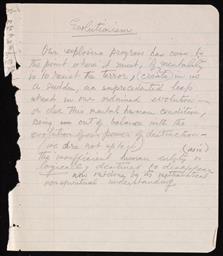 Evolutionism
Our explosive progress has come to
the point where it must, if mentality
is to the terror, (create) in us
a sudden, an unprecedented leap
ahead in our ordained evolution —
or else this mental human condition,
being in out of balance with the
evolution of our powers of destruction —
(we dare not use it)
the insufficient human entity is
logically destined to disappear
now by its
nonspiritual understanding